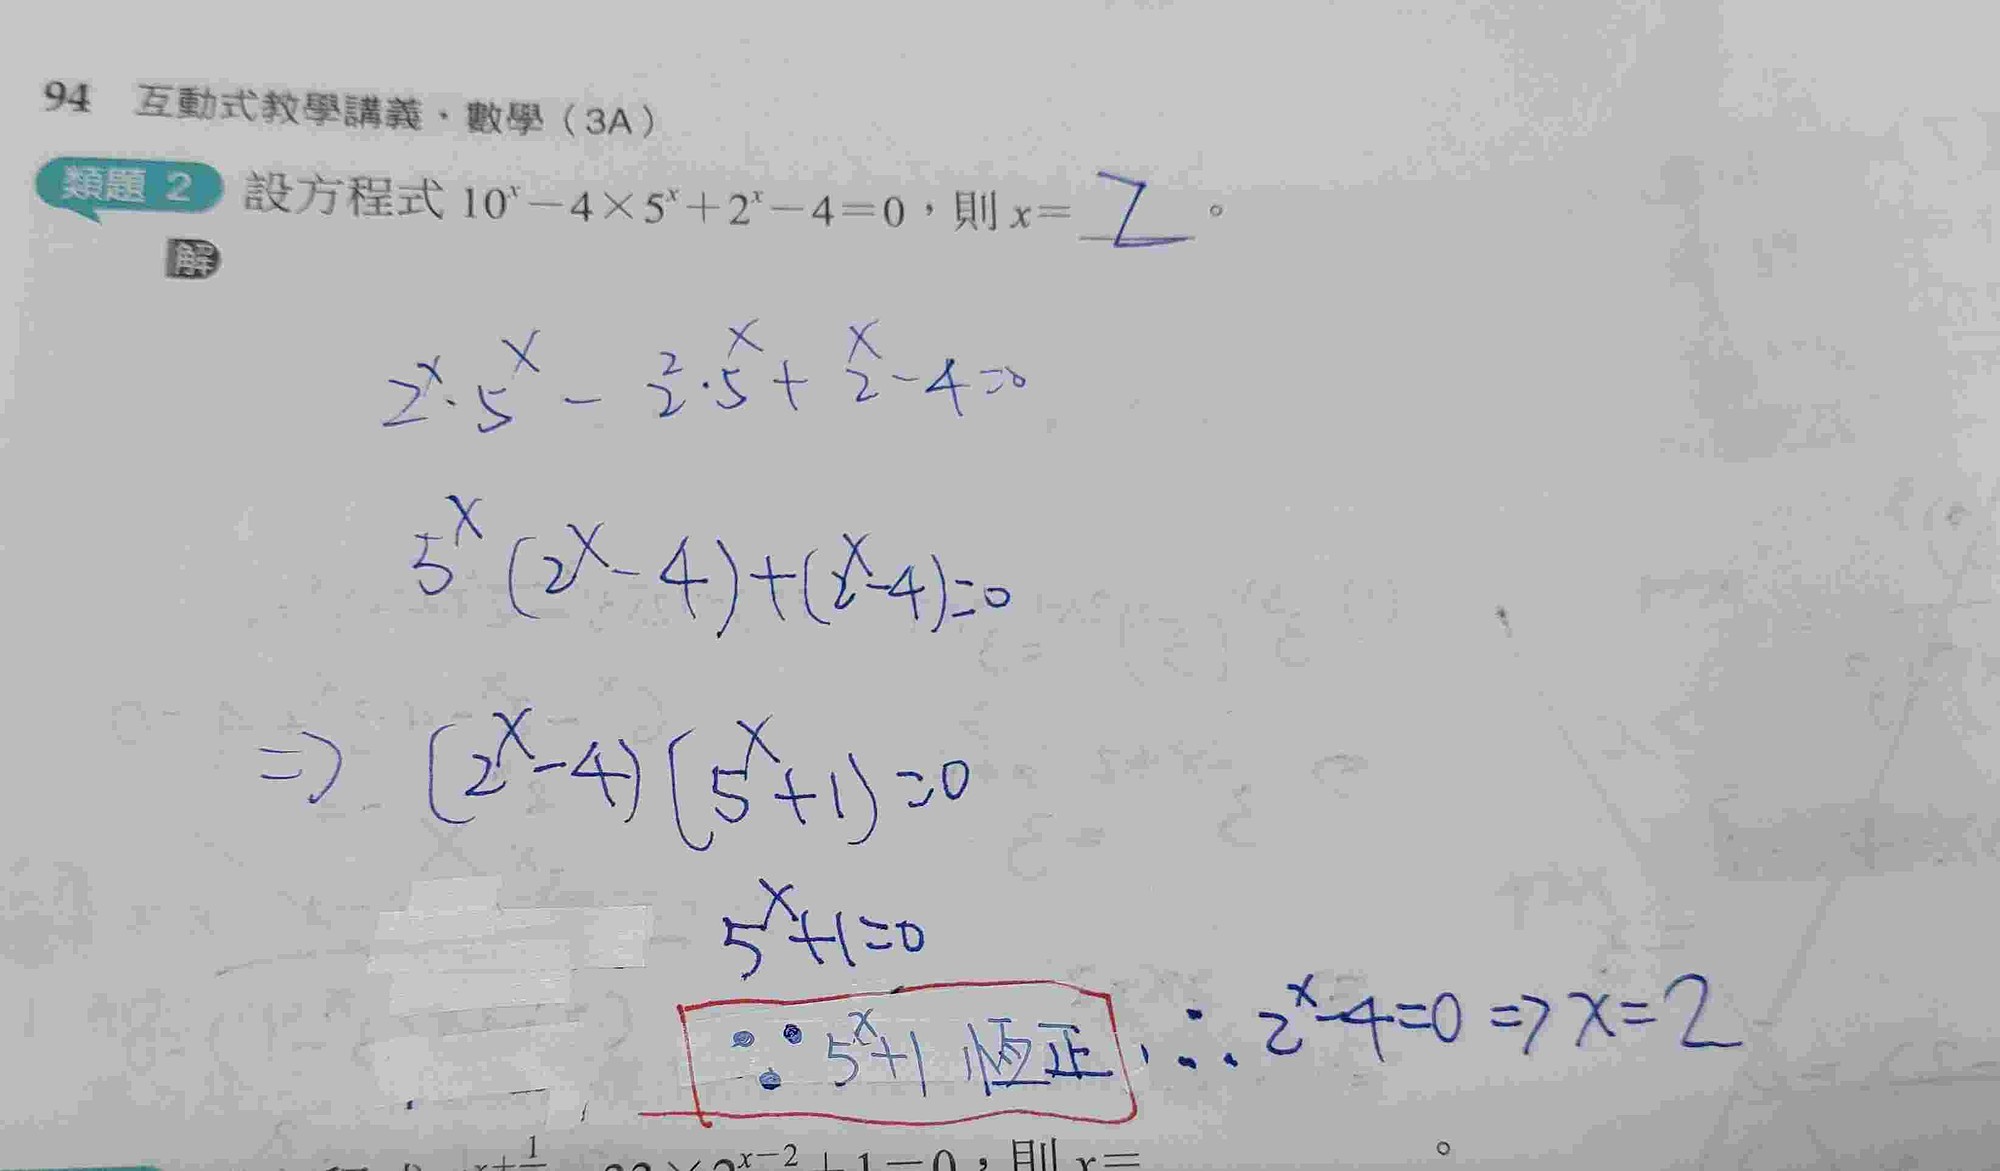 94 互動式教學講義・數學（3A）
類題 2 設方程式 10ˣ－4×5ˣ＋2ˣ－4＝0，則 x＝ 2 。
解
2ˣ·5ˣ - 2²·5ˣ + 2ˣ - 4 = 0
5ˣ(2ˣ-4)+(2ˣ-4)=0
=> (2ˣ-4)(5ˣ+1)=0
5ˣ+1=0
∵ 5ˣ+1 恆正, ∴ 2ˣ-4=0 => x=2
×2ˣ⁻²＋1＝0，則 x＝ 。